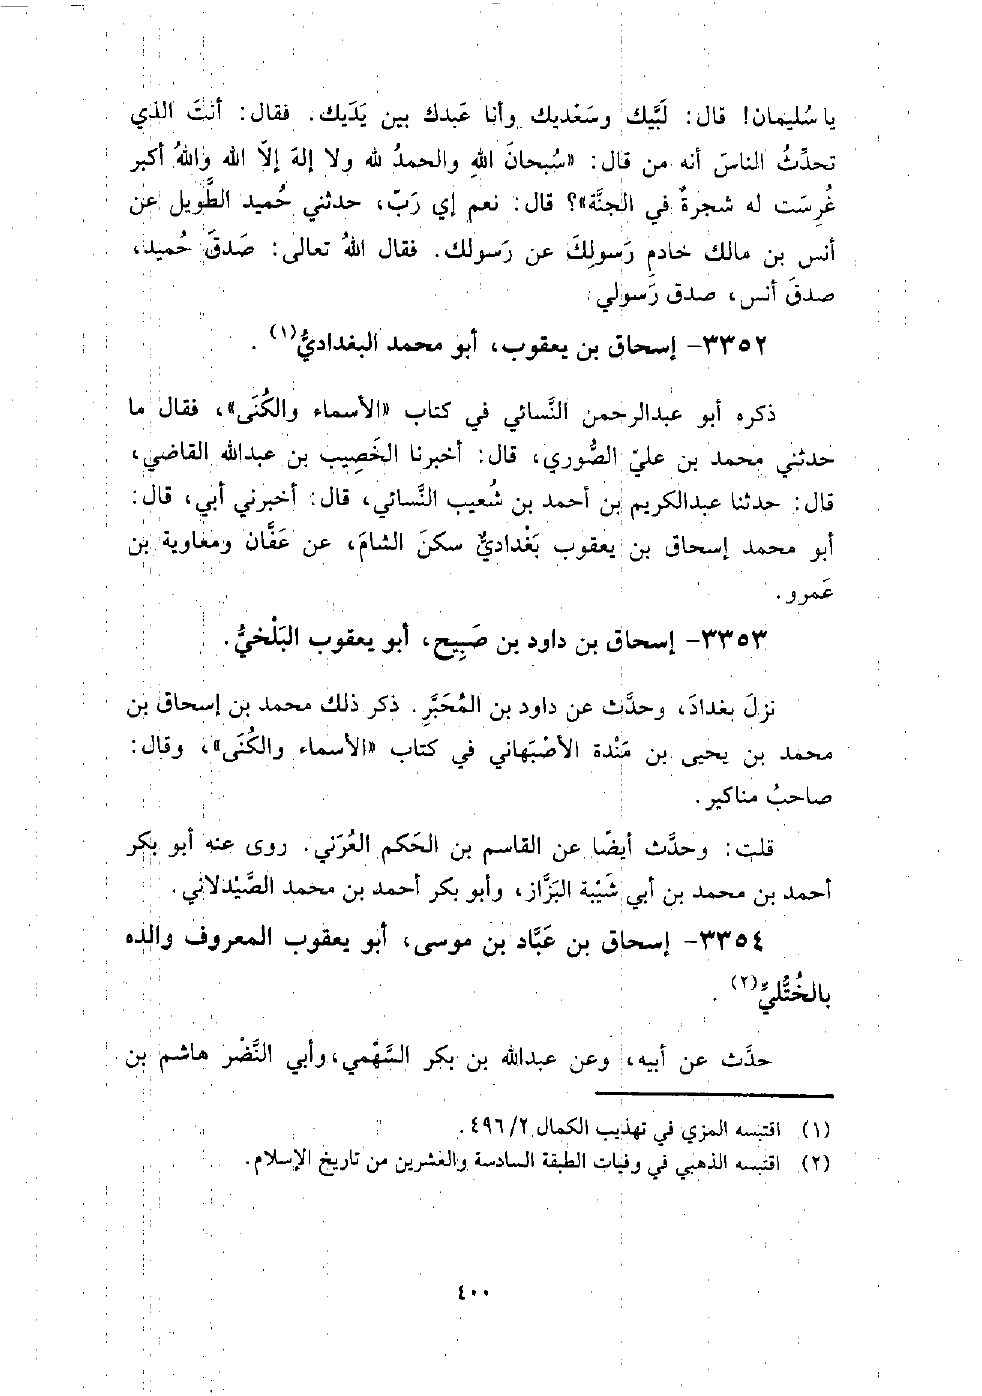 يا سُليمان! قال: لَبَّيك وسَعْديك وأنا عَبدك بين يَدَيك. فقال: أنتَ الذي
تحدِّثُ الناسَ أنه من قال: «سُبحانَ اللهِ والحمدُ لله ولا إلهَ إلّا الله واللهُ أكبر
غُرِسَت له شجرةٌ في الجنَّة»؟ قال: نعم إي رَبّ، حدثني حُميد الطَّويل عن
أنس بن مالك خادمِ رَسولِكَ عن رَسولك. فقال اللهُ تعالى: صَدقَ حُميد،
صدقَ أنس، صدق رَسولي.
٣٣٥٢- إسحاق بن يعقوب، أبو محمد البغداديُّ(١).
ذكره أبو عبدالرحمن النَّسائي في كتاب «الأسماء والكُنَى»، فقال ما
حدثني محمد بن عليّ الصُّوري، قال: أخبرنا الخَصِيب بن عبدالله القاضي،
قال: حدثنا عبدالكريم بن أحمد بن شُعيب النَّسائي، قال: أخبرني أبي، قال:
أبو محمد إسحاق بن يعقوب بَغْداديٌّ سكنَ الشامَ، عن عَفَّان ومعاوية بن
عَمرو.
٣٣٥٣- إسحاق بن داود بن صَبِيح، أبو يعقوب البَلْخيُّ.
نزلَ بغدادَ، وحدَّث عن داود بن المُحَبَّرِ. ذكر ذلك محمد بن إسحاق بن
محمد بن يحيى بن مَنْدة الأصْبَهاني في كتاب «الأسماء والكُنَى»، وقال:
صاحبُ مناكير.
قلت: وحدَّث أيضًا عن القاسم بن الحَكم العُرَني. روى عنه أبو بكر
أحمد بن محمد بن أبي شَيْبة البَزَّاز، وأبو بكر أحمد بن محمد الصَّيْدلاني.
٣٣٥٤- إسحاق بن عَبَّاد بن موسى، أبو يعقوب المعروف والده
بالخُتُّليِّ(٢).
حدَّث عن أبيه، وعن عبدالله بن بكر السَّهْمي، وأبي النَّضْر هاشم بن
(١) اقتبسه المزي في تهذيب الكمال ٢/ ٤٩٦.
(٢) اقتبسه الذهبي في وفيات الطبقة السادسة والعشرين من تاريخ الإسلام.
٤٠٠